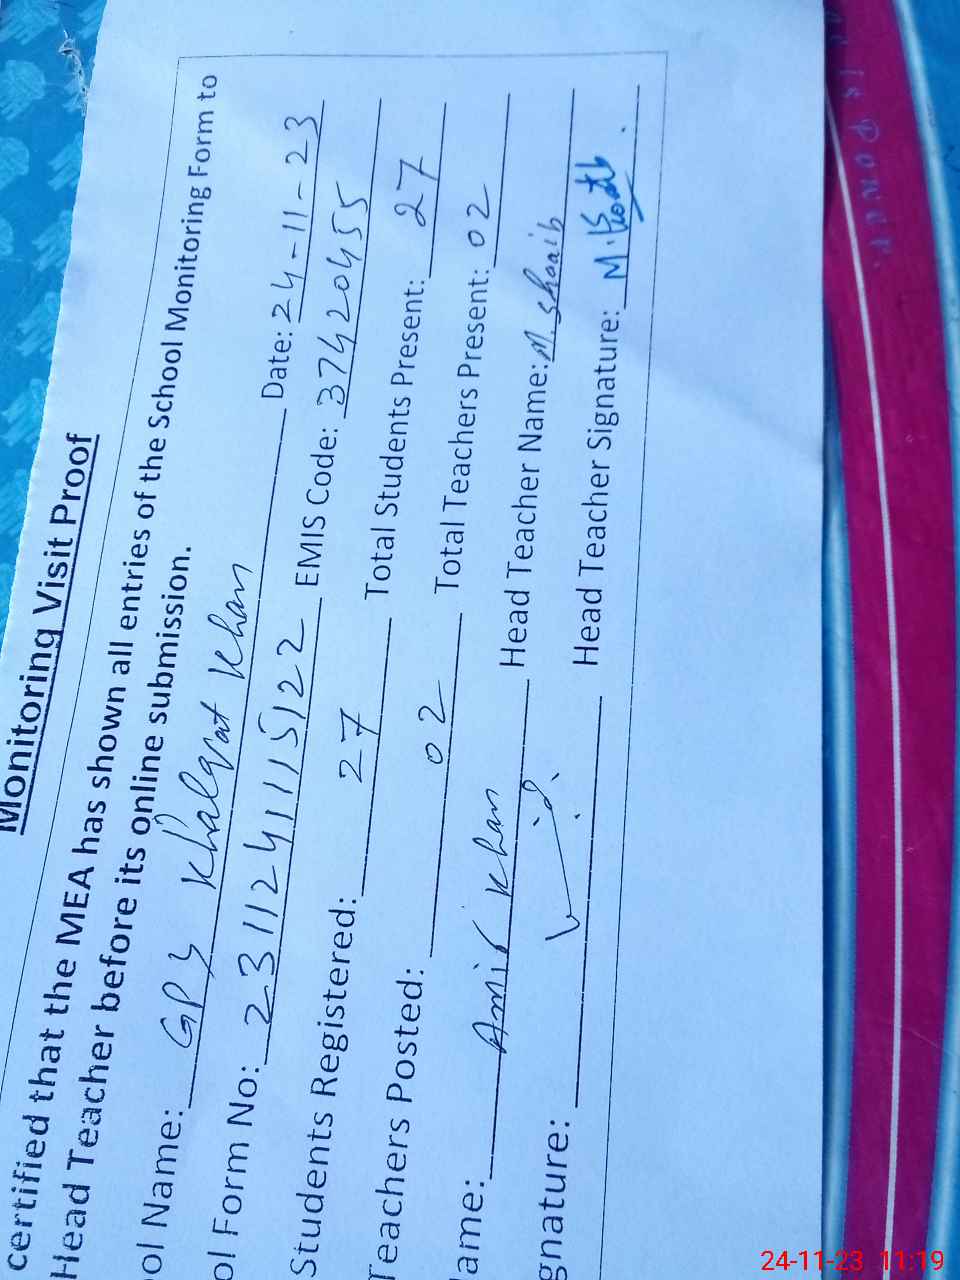 Monitoring Visit Proof
certified that the MEA has shown all entries of the School Monitoring Form to
Head Teacher before its online submission.
ol Name: GPS Khalqat Khan Date: 24-11-23
ol Form No: 2311241115122 EMIS Code: 37420455
Students Registered: 27 Total Students Present: 27
Teachers Posted: 02 Total Teachers Present: 02
ame: Amir Khan Head Teacher Name: M. Shoaib
gnature: Head Teacher Signature: M.
is Power.
24-11-23 11:19